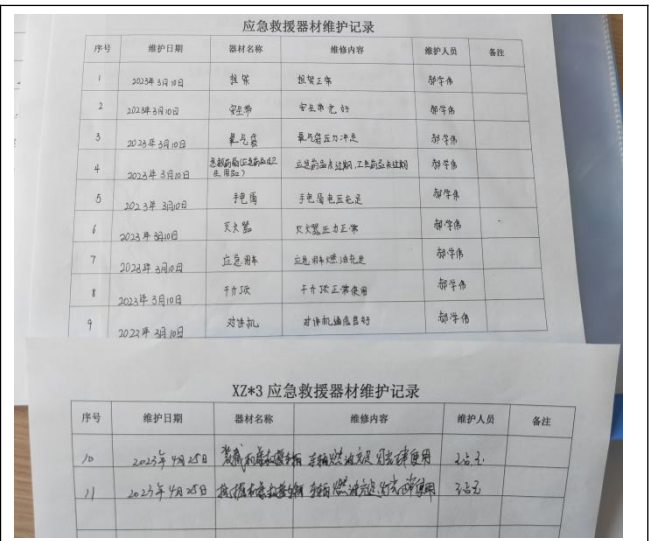 应急救援器材维护记录
序号 维护日期 器材名称 维修内容 维护人员 备注
1 2023年3月10日 担架 担架正常 郝学伟
2 2023年3月10日 安全带 安全带完好 郝学伟
3 2023年3月10日 氧气袋 氧气袋压力冲足 郝学伟
4 2023年3月10日 急救药箱 应急药品未过期,卫生药品未过期 郝学伟
5 2023年3月10日 手电筒 手电筒电压充足 郝学伟
6 2023年3月10日 灭火器 灭火器压力正常 郝学伟
7 2023年3月10日 应急用车 应急用车燃油充足 郝学伟
8 2023年3月10日 千斤顶 千斤顶正常使用 郝学伟
9 2023年3月10日 对讲机 对讲机通信良好 郝学伟
XZ*3应急救援器材维护记录
序号 维护日期 器材名称 维修内容 维护人员 备注
10 2023年4月25日 车辆燃油充足 使用
11 2023年4月25日 车辆燃油充足 使用